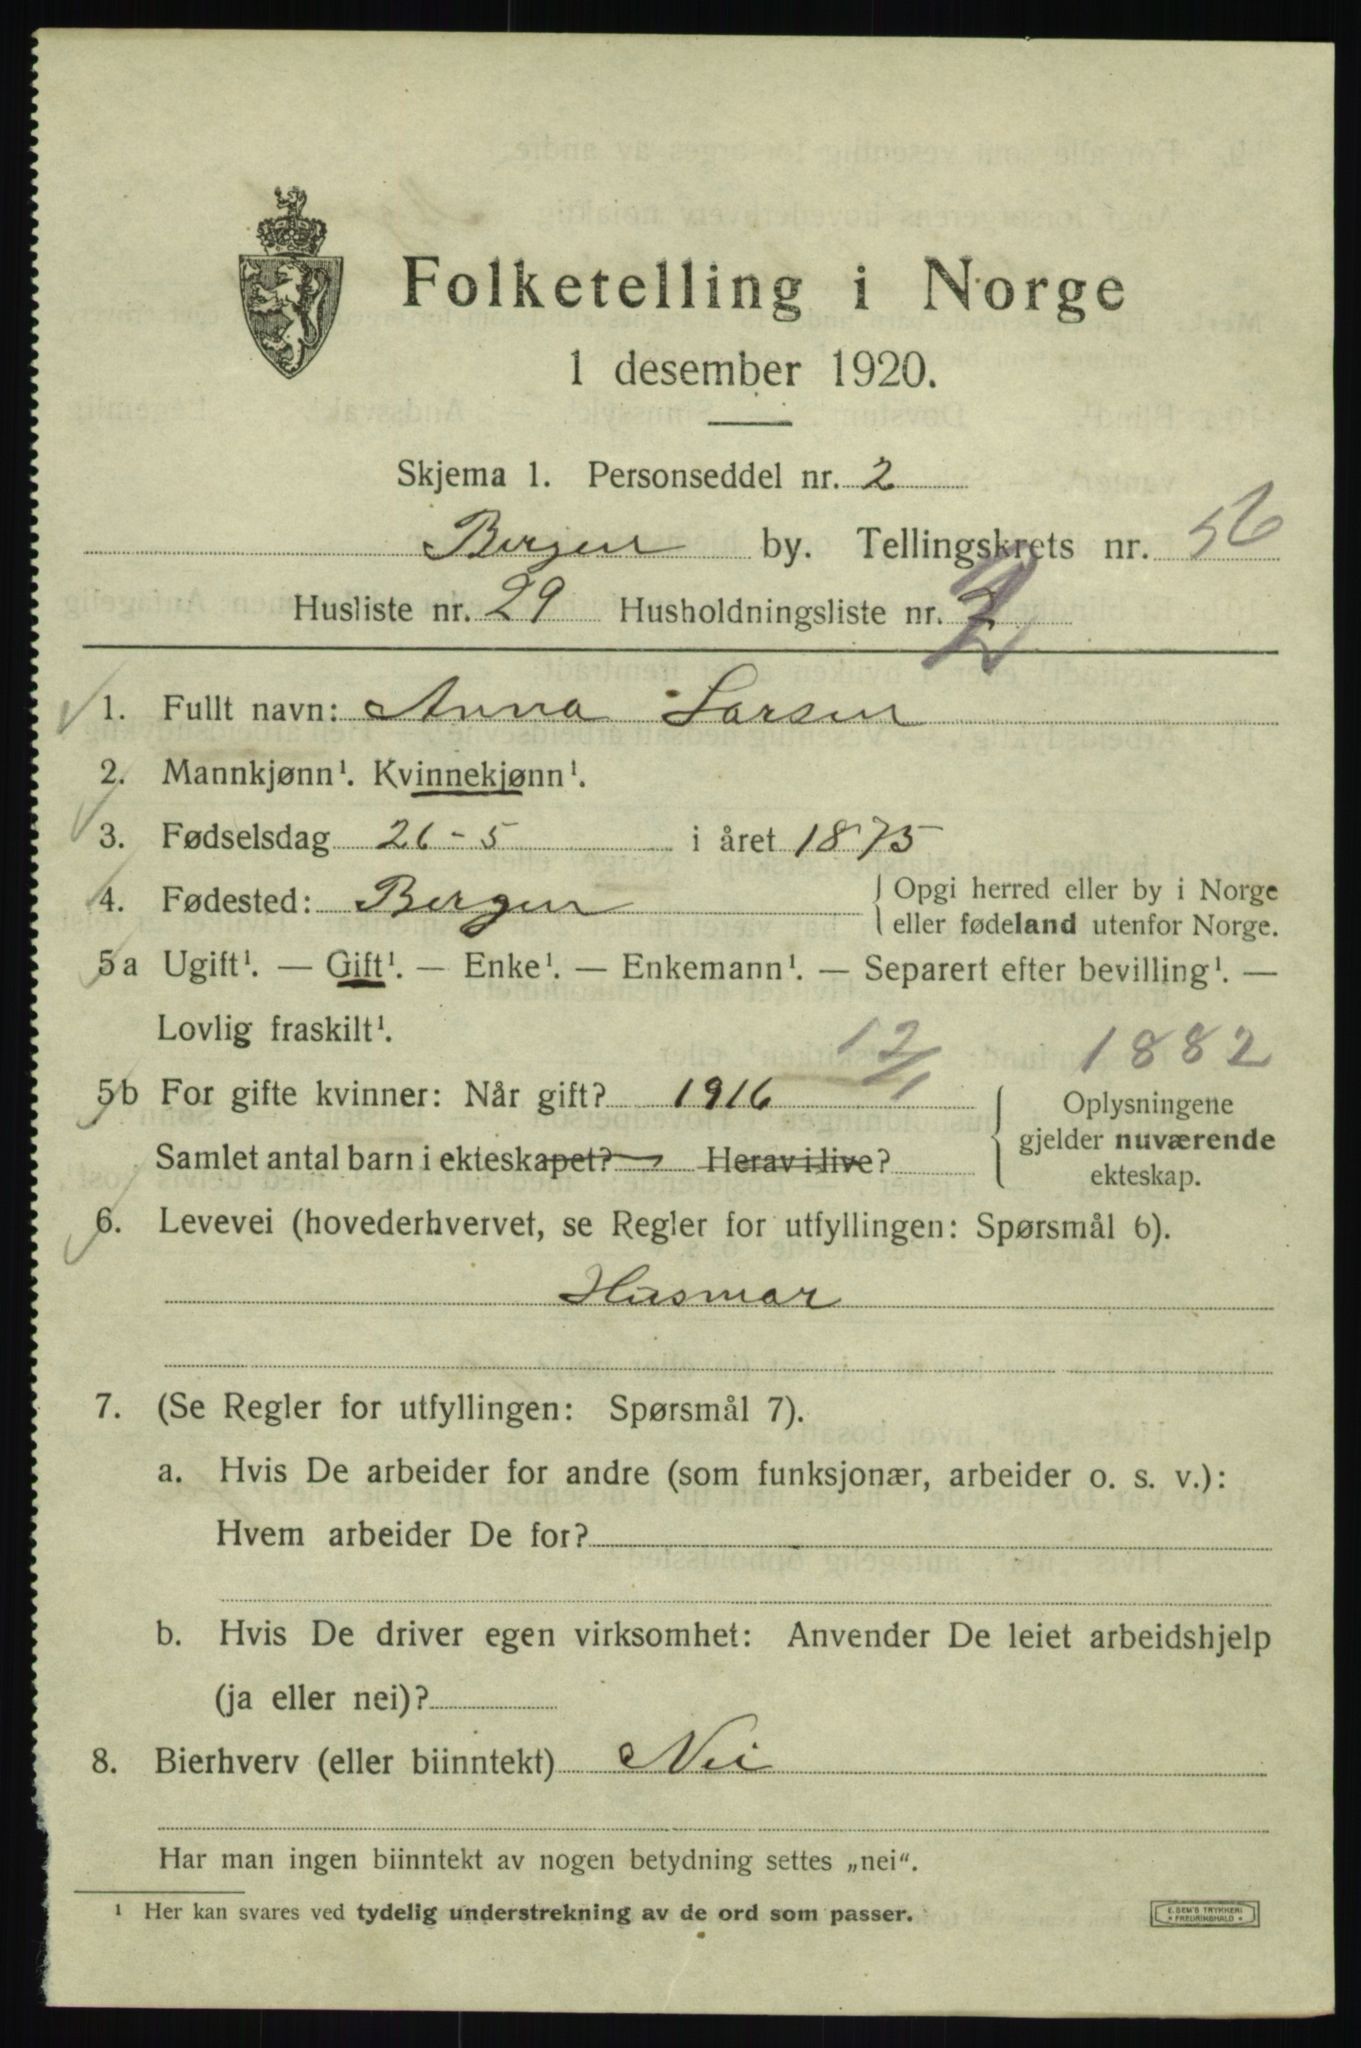 Folketelling i Norge
1 desember 1920.
Skjema 1. Personseddel nr. 2
Bergen by. Tellingskrets nr. 56
Husliste nr. 29 Husholdningsliste nr. 2
1. Fullt navn: Anna Larsen
2. Mannkjønn¹. Kvinnekjønn¹.
3. Fødselsdag 26-5 i året 1875
4. Fødested: Bergen { Opgi herred eller by i Norge
eller fødeland utenfor Norge.
5a Ugift¹. — Gift¹. — Enke¹. — Enkemann¹. — Separert efter bevilling¹. —
Lovlig fraskilt¹.
12/1 1882
5b For gifte kvinner: Når gift? 1916
Samlet antal barn i ekteskapet? Herav i live?
{ Oplysningene
gjelder nuværende
ekteskap.
6. Levevei (hovederhvervet, se Regler for utfyllingen: Spørsmål 6).
Husmor
7. (Se Regler for utfyllingen: Spørsmål 7).
a. Hvis De arbeider for andre (som funksjonær, arbeider o. s. v.):
Hvem arbeider De for?
b. Hvis De driver egen virksomhet: Anvender De leiet arbeidshjelp
(ja eller nei)?
8. Bierhverv (eller biinntekt) Nei
Har man ingen biinntekt av nogen betydning settes „nei“.
¹ Her kan svares ved tydelig understrekning av de ord som passer.
E. SEM'S TRYKKERI
FREDRIKSHALD